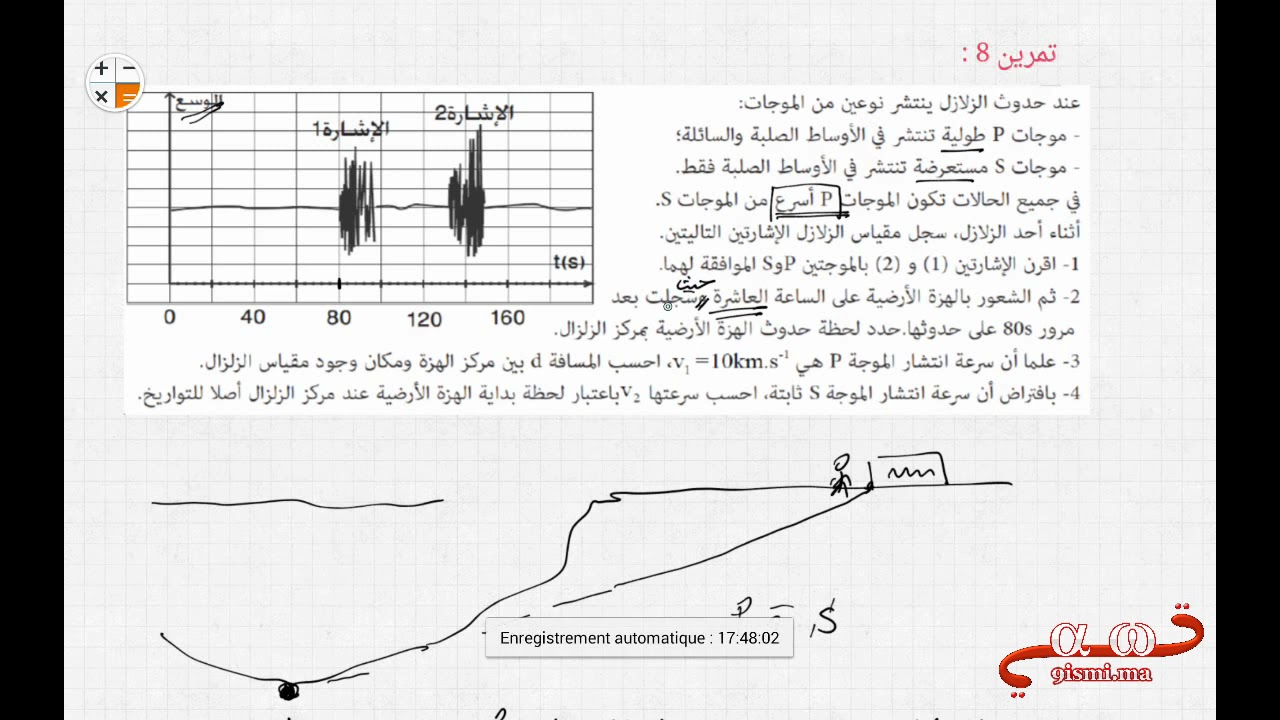 تمرين 8 :
عند حدوث الزلازل ينتشر نوعين من الموجات:
- موجات P طولية تنتشر في الأوساط الصلبة والسائلة؛
- موجات S مستعرضة تنتشر في الأوساط الصلبة فقط.
في جميع الحالات تكون الموجات P أسرع من الموجات S.
أثناء أحد الزلازل، سجل مقياس الزلازل الإشارتين التاليتين.
1- اقرن الإشارتين (1) و (2) بالموجتين P وS الموافقة لهما.
حيث
2- ثم الشعور بالهزة الأرضية على الساعة العاشرة وسجلت بعد
مرور 80s على حدوثها.حدد لحظة حدوث الهزة الأرضية بمركز الزلزال.
3- علما أن سرعة انتشار الموجة P هي v₁ =10km.s⁻¹، احسب المسافة d بين مركز الهزة ومكان وجود مقياس الزلزال.
4- بافتراض أن سرعة انتشار الموجة S ثابتة، احسب سرعتها v₂ باعتبار لحظة بداية الهزة الأرضية عند مركز الزلزال أصلا للتواريخ.
الوسع
الإشارة1
الإشارة2
t(s)
0 40 80 120 160
P
S
Enregistrement automatique : 17:48:02
α ω
gismi.ma